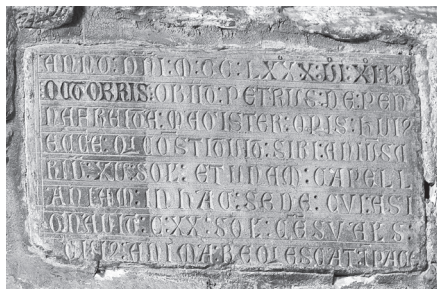 ANNO : DNI : M : CC : LXXX : III : XI : KL
OCTOBRIS : OBIIT : PETRUS : DE : PEN
NAFREITA : MAGISTER : OPIS : HUI
ECCE : Q : COSTITUIT : SIBI : ANIUSA
XII : SOL : ET UNAM : CAPELL
ANIAM : INHAC : SEDE : CUI : ASI
GNAVIT : CXX : SOL : CESUALS :
CUI : ANIMA : REQIESCAT : I PACE